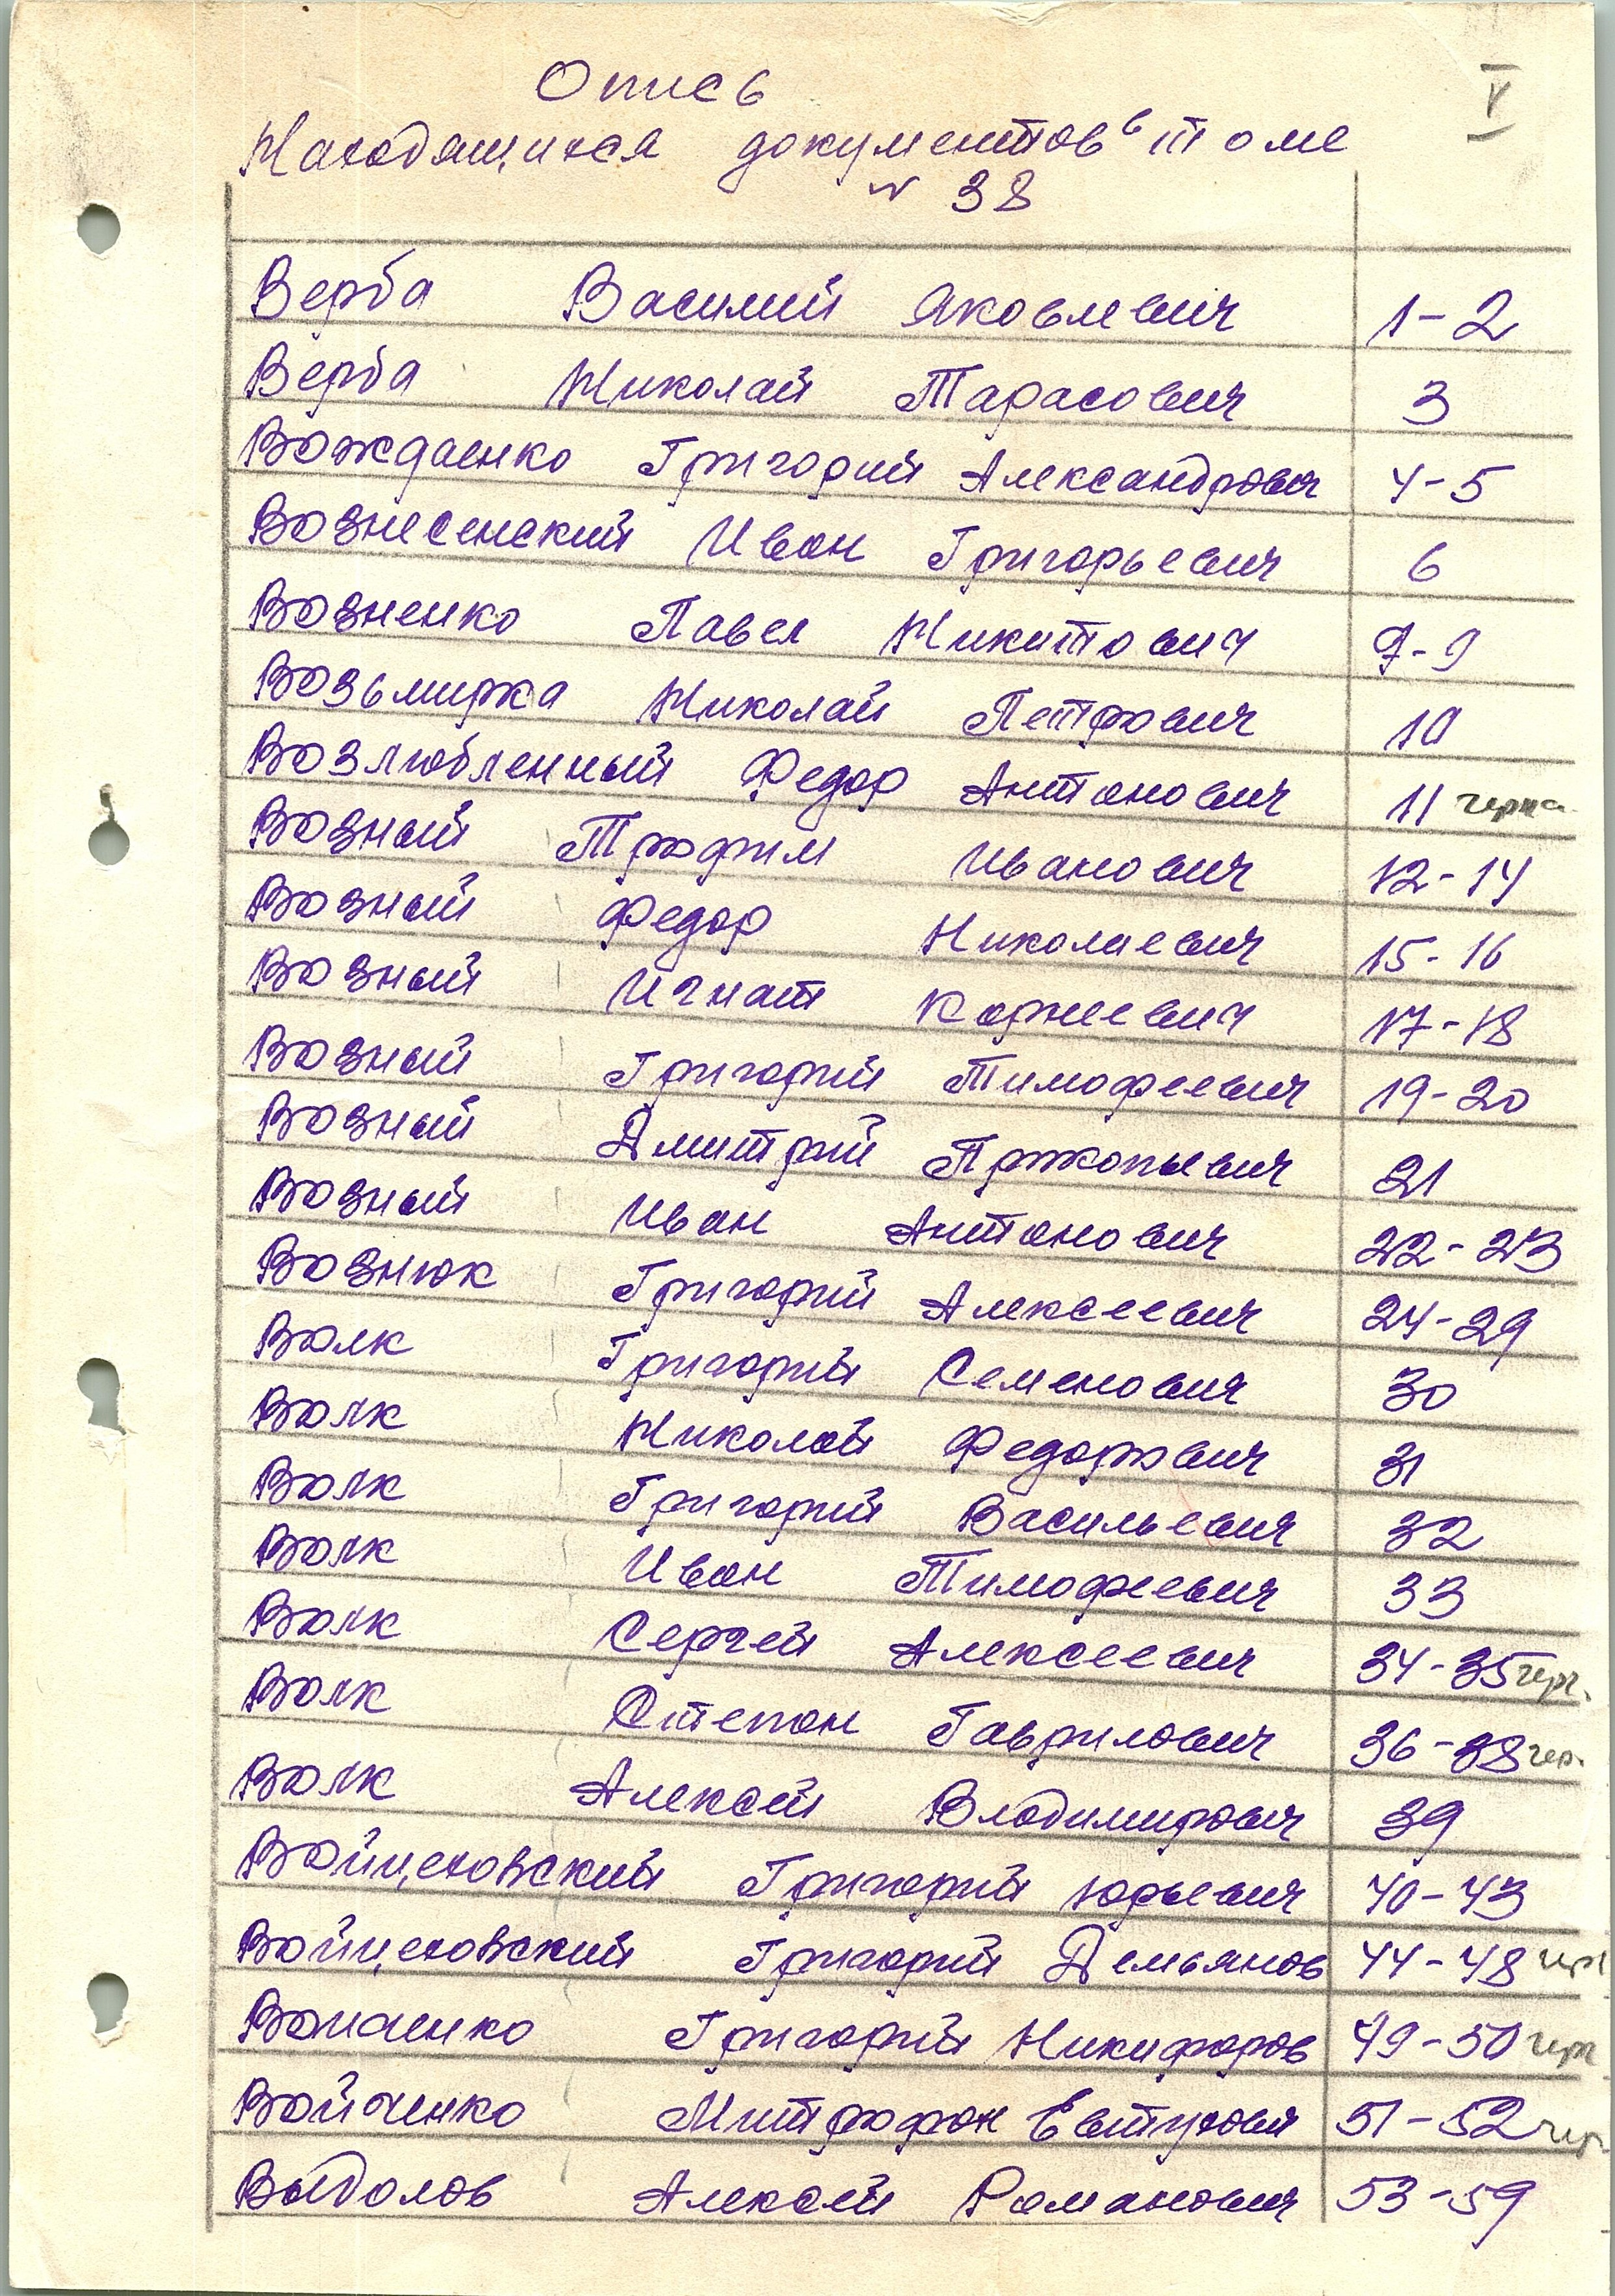 Опись
V
Находящихся документов в томе
№ 38
Верба Василий Яковлевич 1-2
Верба Николай Тарасович 3
Вождаенко Григорий Александрович 4-5
Вознесенский Иван Григорьевич 6
Возненко Павел Никитович 7-9
Возьмирка Николай Петрович 10
Возлюбленный Федор Антонович 11
Возный Трофим Иванович 12-14
Возный Федор Николаевич 15-16
Возный Игнат Корнеевич 17-18
Возный Григорий Тимофеевич 19-20
Возный Дмитрий Прокопьевич 21
Возный Иван Антонович 22-23
Вознюк Григорий Алексеевич 24-29
Волк Григорий Семенович 30
Волк Николай Федорович 31
Волк Григорий Васильевич 32
Волк Иван Тимофеевич 33
Волк Сергей Алексеевич 34-35
Волк Степан Гаврилович 36-38
Волк Алексей Владимирович 39
Войцеховский Григорий Юрьевич 40-43
Войцеховский Григорий Демьянов 44-48
Григорий Никифоров 49-50
Войченко Митрофан 51-52
Выдолов Алексей Романович 53-59